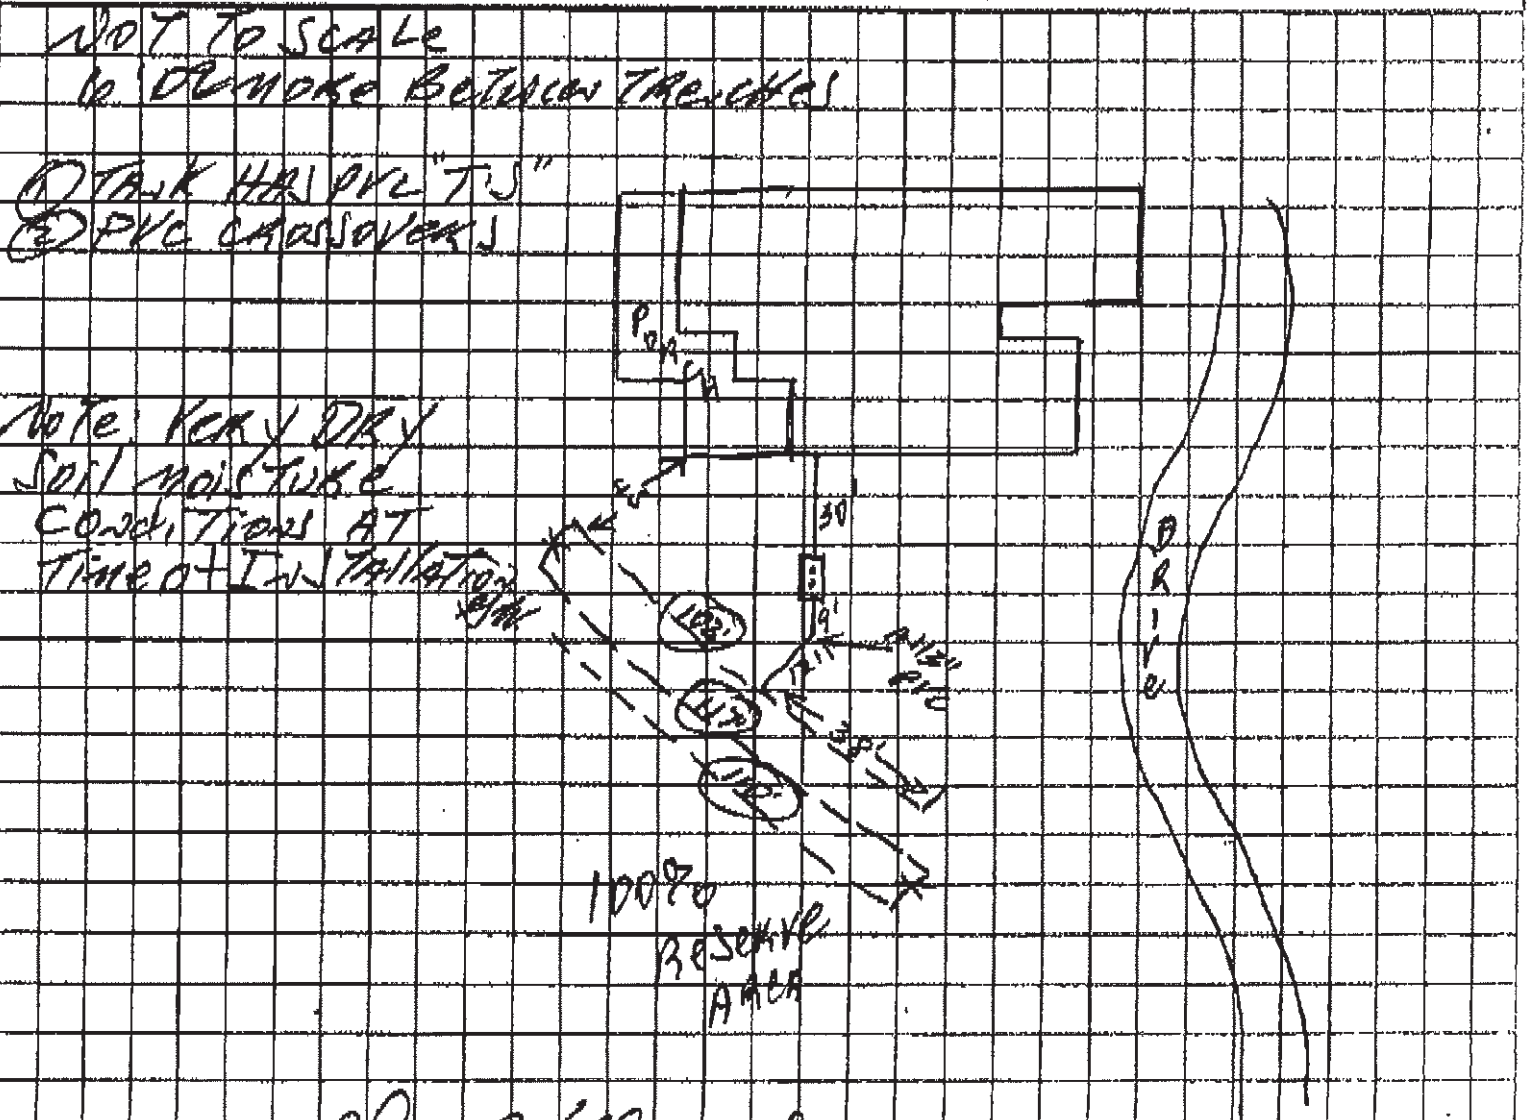 NOT TO SCALE
6 OR MORE BETWEEN TRENCHES
① TANK HAS PVC "TS"
② PVC CROSSOVERS
PORCH
NOTE. VERY DRY
SOIL MOISTURE
CONDITIONS AT
TIME OF INSTALLATION
30'
9'
PVC
38'
DRIVE
100%
RESERVE
AREA